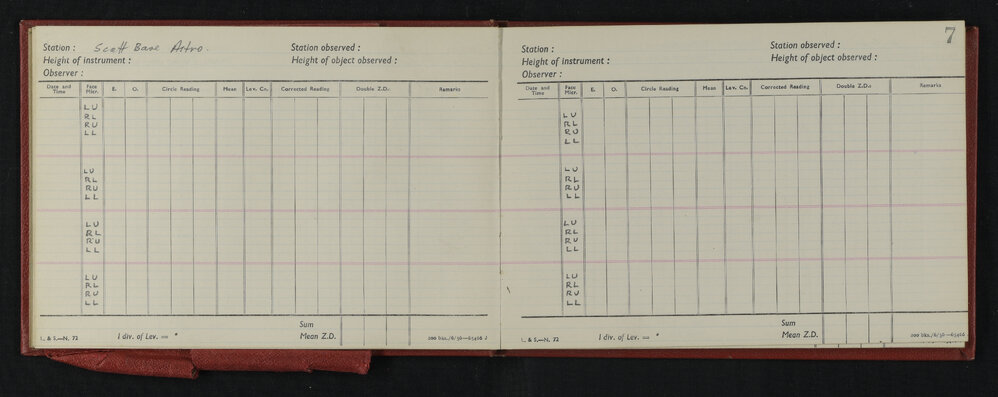 Station : Scott Base Astro.
Station observed :
Height of instrument :
Height of object observed :
Observer :
Date and Time
Face Micr.
E.
O.
Circle Reading
Mean
Lev. Cn.
Corrected Reading
Double Z.D.
Remarks
LU
RL
RU
LL
LU
RL
RU
LL
LU
RL
RU
LL
LU
RL
RU
LL
Sum
L. & S.—N. 72
1 div. of Lev. = "
Mean Z.D.
200 bks./6/56—65466 J
7
Station :
Station observed :
Height of instrument :
Height of object observed :
Observer :
Date and Time
Face Micr.
E.
O.
Circle Reading
Mean
Lev. Cn.
Corrected Reading
Double Z.D.
Remarks
LU
RL
RU
LL
LU
RL
RU
LL
LU
RL
RU
LL
LU
RL
RU
LL
Sum
L. & S.—N. 72
1 div. of Lev. = "
Mean Z.D.
200 bks./6/56—65466